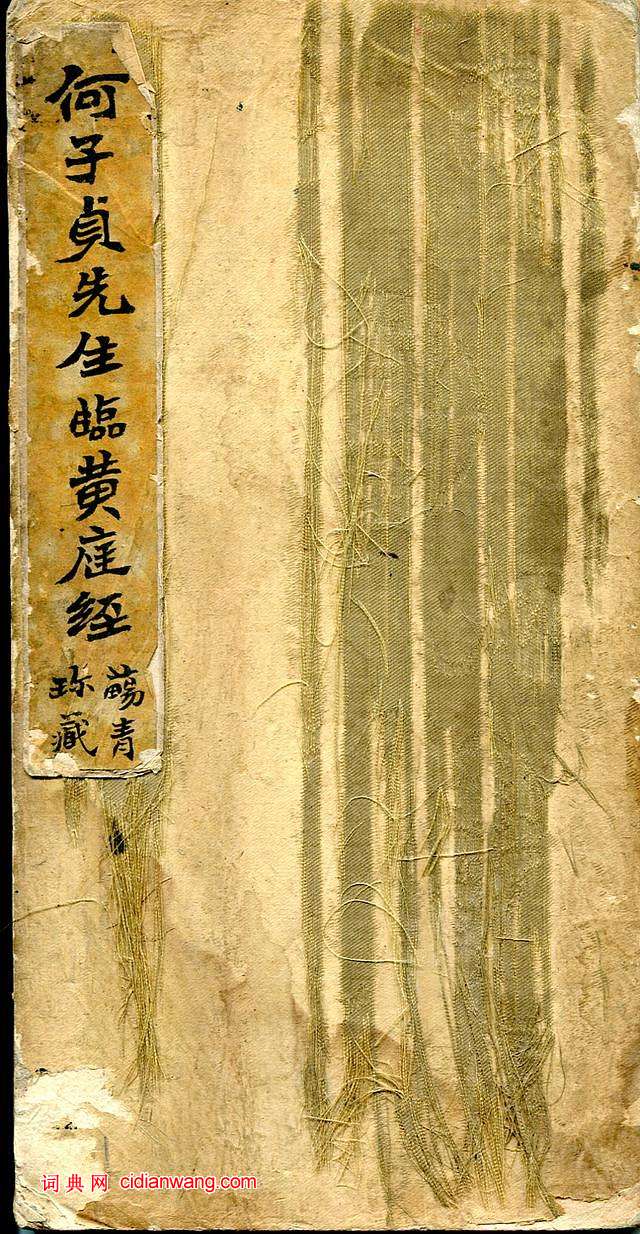 何子貞先生臨黄庭經
蕩青
珎藏
词典网 cidianwang.com